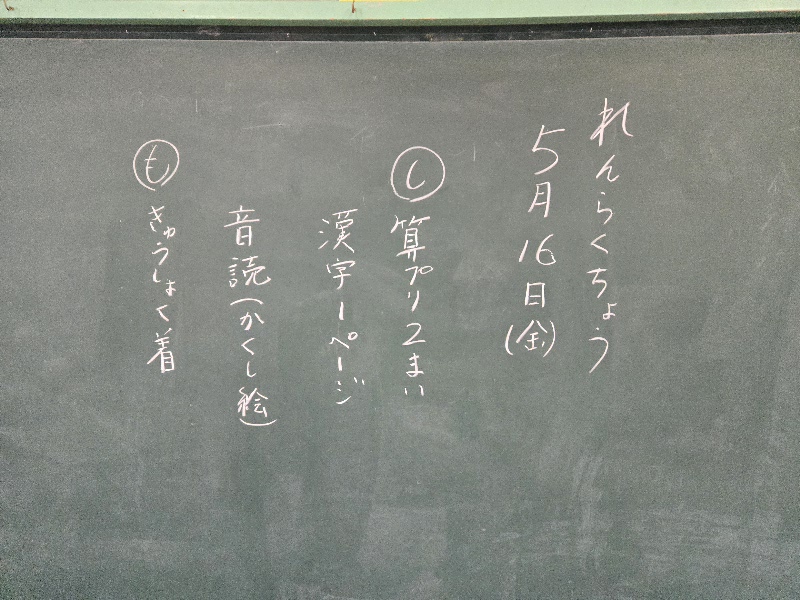 れんらくちょう
5月16日(金)
㋛算プリ2まい
漢字1ページ
音読(かくし絵)
もきゅうしょく着